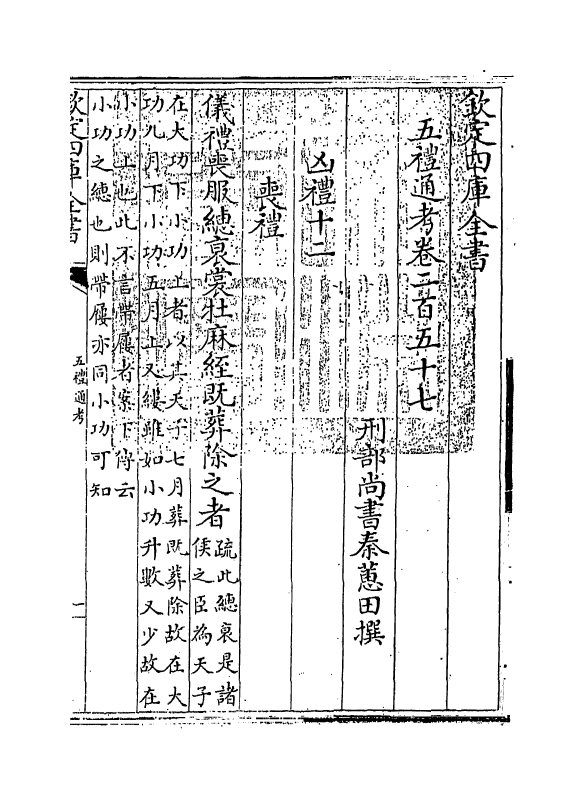 欽定四庫全書
五禮通考卷二百五十七
刑部尚書秦蕙田撰
凶禮十二
喪禮
儀禮喪服繐衰裳牡麻絰既葬除之者
疏此繐衰是諸
侯之臣為天子
在大功下小功上者以其天子七月葬既葬除故在大
功九月下小功五月上又縷雖如小功升數又少故在
小功上也此不言帶屨者案下傳云
小功之繐也則帶屨亦同小功可知
欽定四庫全書
五禮通考